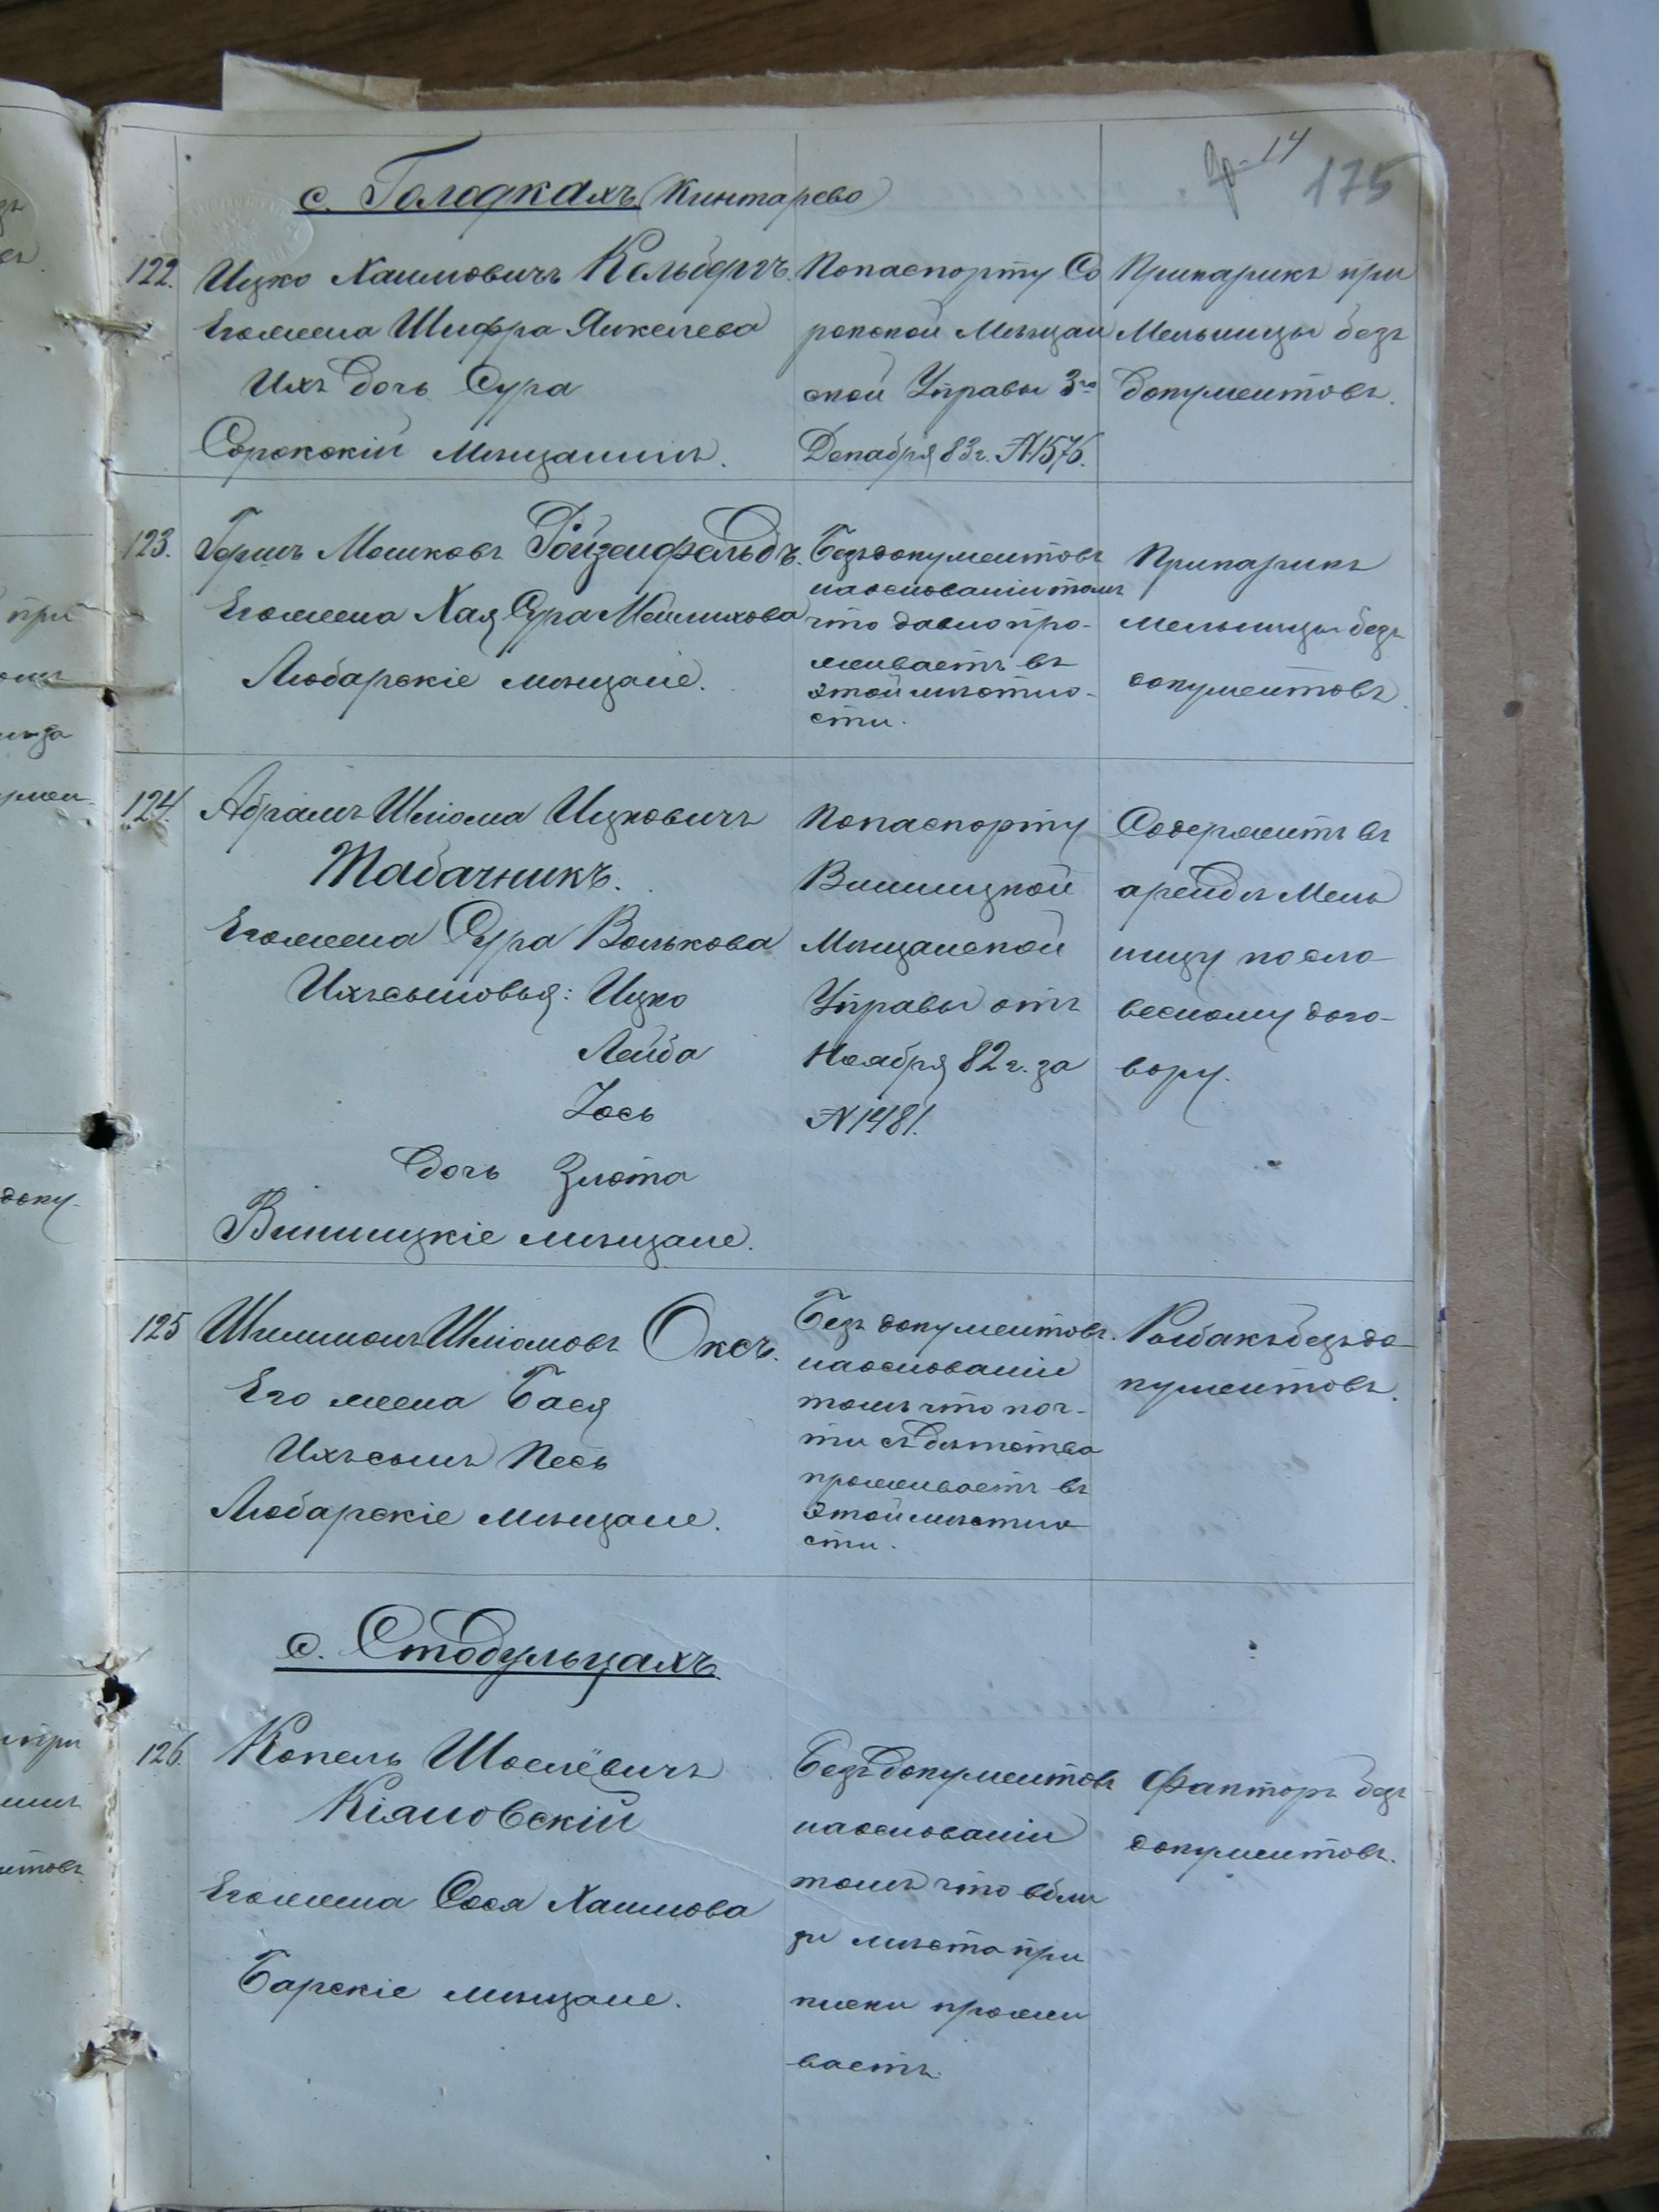 14
175
с. Голодкахъ (Кинтарево)
122. Ицко Хаимовичъ Кольбергъ.
Его жена Шифра Янкелева
Ихъ дочь Сура
Сорокскій Мѣщанинъ.
По паспорту Со
рокской Мѣщан
ской Управы 3го
Декабря 83 г. №1576.
Прикащикъ при
Мельницы безъ
документовъ.
123. Гершъ Мошковъ Ройзенфельдъ.
Его жена Хая Сура Мейлихова
Любарскіе мѣщане.
Безъ документовъ
на основаніи томъ
что давно про-
живаетъ въ
этой мѣстно-
сти.
мельницы безъ
документовъ.
124. Абрамъ Шліома Ицковичъ
Табачникъ.
Его жена Сура Волькова
Ихъ сыновья: Ицко
Лейба
Іось
дочь Злота
Винницкіе мѣщане.
По паспорту
Винницкой
Мѣщанской
Управы отъ
Ноября 82 г. за
№1481.
Содержитъ въ
арендѣ Мель
ницу по сло-
весному дого-
вору.
125 Шліомовъ Оксъ.
Его жена Бася
Ихъ сынъ Песь
Любарскіе мѣщане.
Безъ документовъ.
на основаніи
томъ что поч-
ти съ дѣтства
проживаетъ въ
этой мѣстно
сти.
Рыбакъ безъ до-
кументовъ.
с. Стодульцахъ.
126. Копель Шоелёвичъ
Кіяновскій
Его жена Сося Хаимова
Барскіе мѣщане.
Безъ документовъ
на основаніи
томъ что вбли
зи мѣста при
писки прожи
ваетъ.
Факторъ безъ
документовъ.